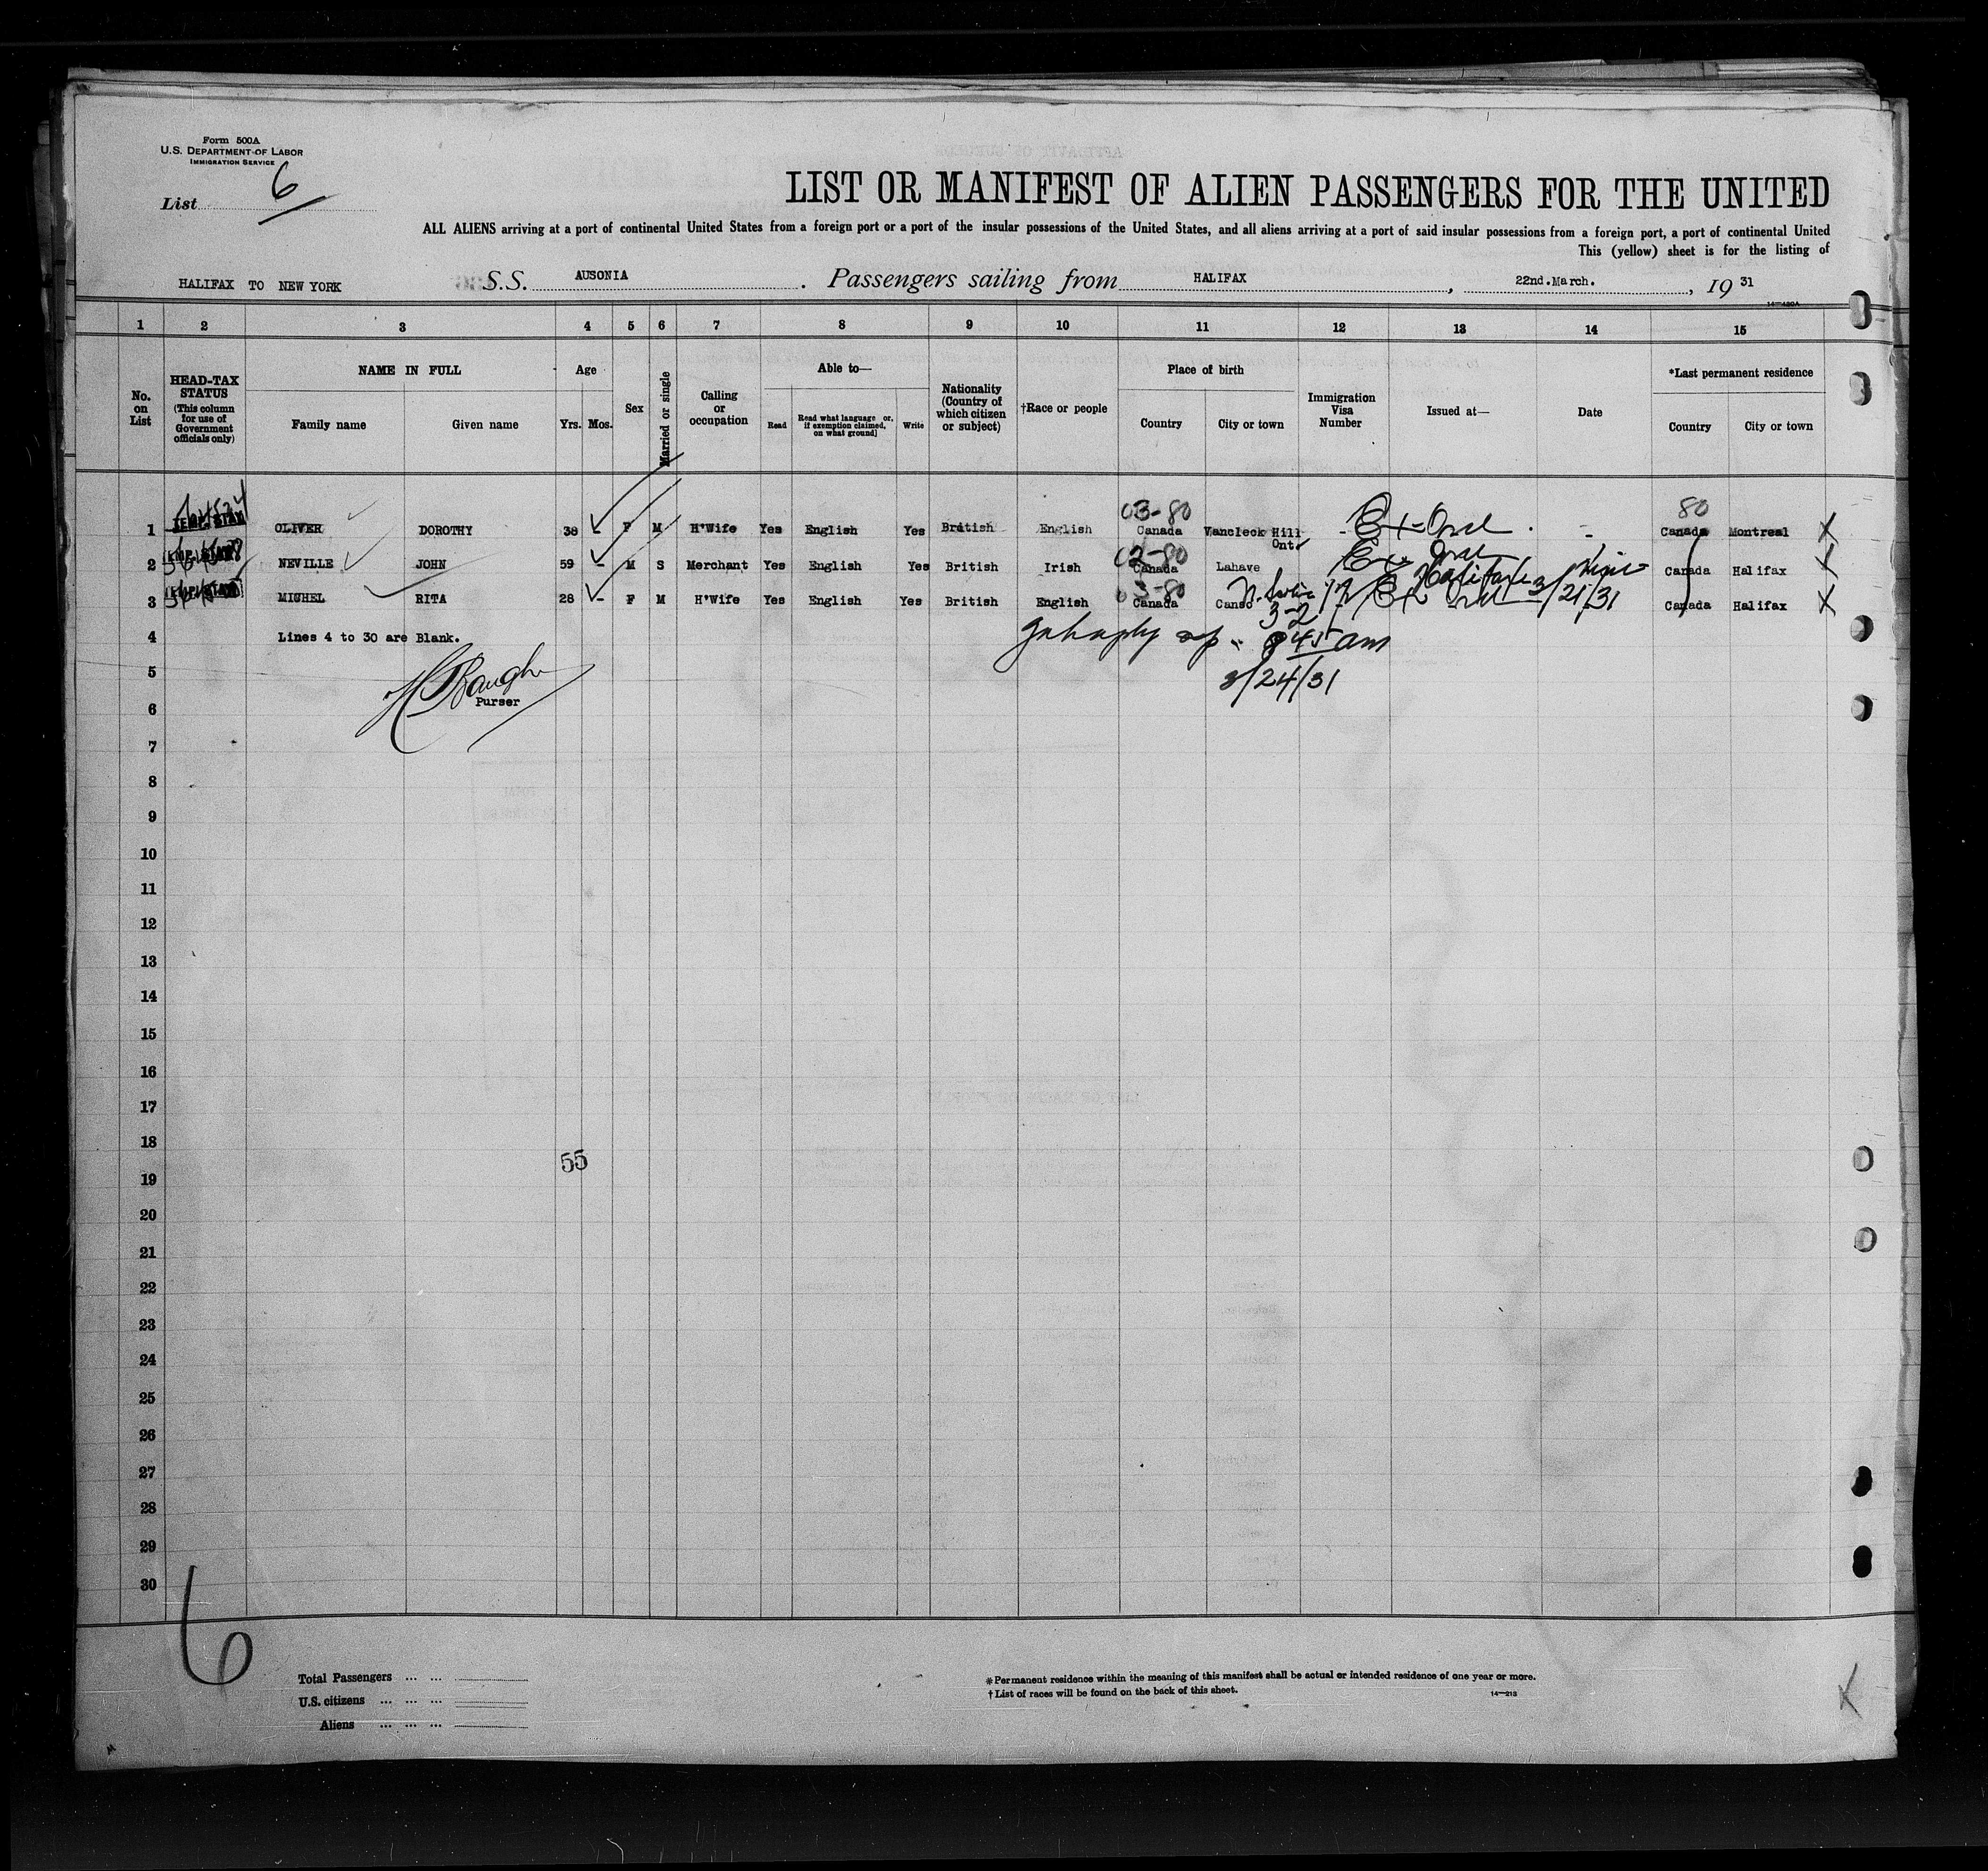 Form 500A
U.S. DEPARTMENT OF LABOR
IMMIGRATION SERVICE
List 6
LIST OR MANIFEST OF ALIEN PASSENGERS FOR THE UNITED
ALL ALIENS arriving at a port of continental United States from a foreign port or a port of the insular possessions of the United States, and all aliens arriving at a port of said insular possessions from a foreign port, a port of continental United
This (yellow) sheet is for the listing of
HALIFAX TO NEW YORK S.S. AUSONIA . Passengers sailing from HALIFAX , 22nd.March. , 19 31
1 2 3 4 5 6 7 8 9 10 11 12 13 14 15
No. on List
HEAD-TAX STATUS (This column for use of Government officials only)
NAME IN FULL
Family name Given name
Age
Yrs. Mos.
Sex
Married or single
Calling or occupation
Able to—
Read
Read what language or, if exemption claimed, on what ground]
Write
Nationality (Country of which citizen or subject)
†Race or people
Place of birth
Country City or town
Immigration Visa Number
Issued at—
Date
*Last permanent residence
Country City or town
03-80 80
1 OLIVER DOROTHY 38 F M H'Wife Yes English Yes British English Canada Vancleek Hill Ont. Canada Montreal X
02-80
2 NEVILLE JOHN 59 - M S Merchant Yes English Yes British Irish Canada Lahave Canada Halifax X
3-80
3 MICHEL RITA 28 - F M H'Wife Yes English Yes British English Canada Canso Halifax 3/21/31 Canada Halifax X
3-2
4 Lines 4 to 30 are Blank. 45 am
5 3/24/31
Purser
6
7
8
9
10
11
12
13
14
15
16
17
18
55
19
20
21
22
23
24
25
26
27
28
29
30
6
Total Passengers ... ...
U.S. citizens ... ... ...
Aliens ... ... ...
*Permanent residence within the meaning of this manifest shall be actual or intended residence of one year or more.
†List of races will be found on the back of this sheet.
14—213